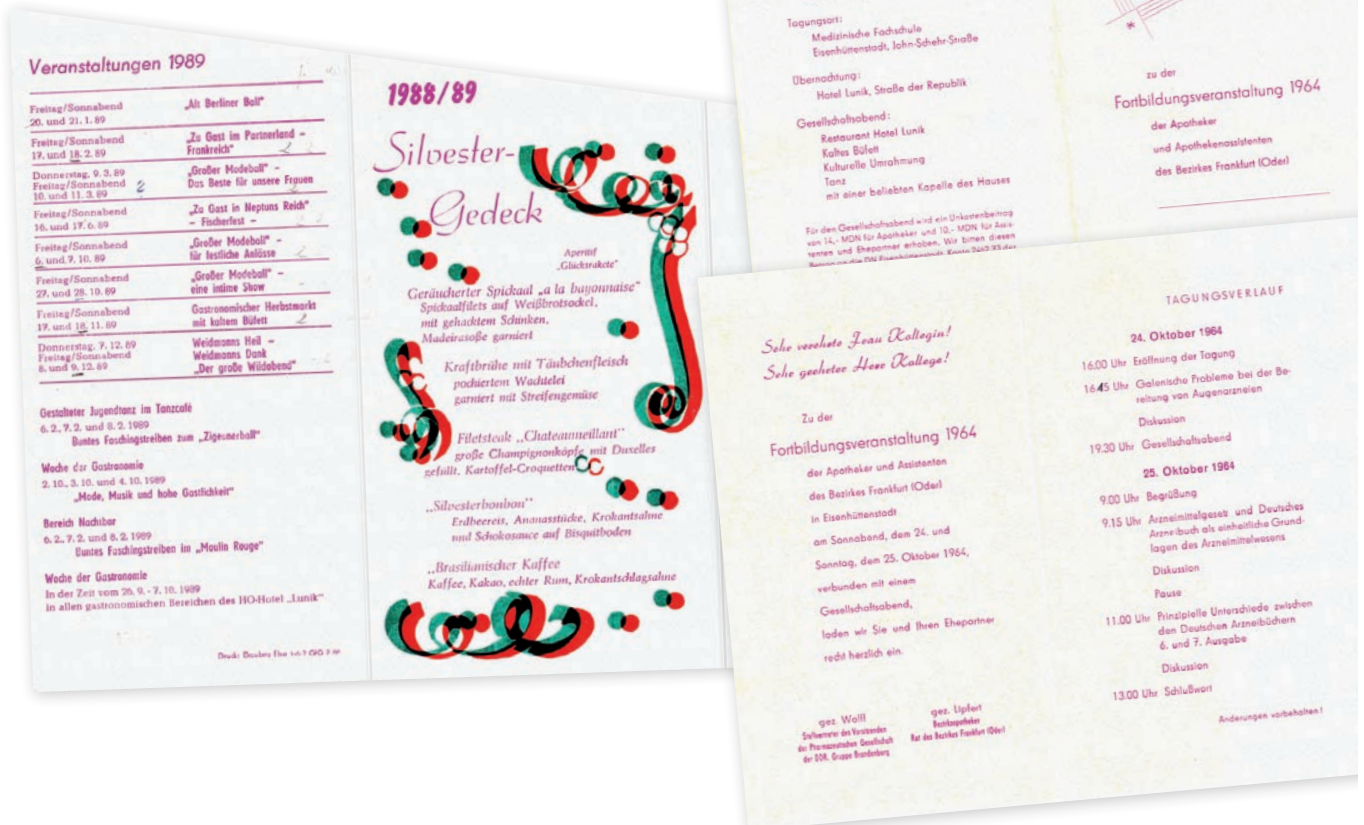 Veranstaltungen 1989
Freitag/Sonnabend „Alt Berliner Ball“
20. und 21. 1. 89
Freitag/Sonnabend „Zu Gast im Partnerland –
17. und 18. 2. 89 Frankreich“
Donnerstag, 9. 3. 89 „Großer Modeball“ –
Freitag/Sonnabend 2 Das Beste für unsere Frauen
10. und 11. 3. 89
Freitag/Sonnabend „Zu Gast in Neptuns Reich“
16. und 17. 6. 89 – Fischerfest –
Freitag/Sonnabend „Großer Modeball“ –
6. und 7. 10. 89 für festliche Anlässe
Freitag/Sonnabend „Großer Modeball“ –
27. und 28. 10. 89 eine intime Show
Freitag/Sonnabend Gastronomischer Herbstmarkt
17. und 18. 11. 89 mit kaltem Büfett 2
Donnerstag, 7. 12. 89 Weidmanns Heil –
Freitag/Sonnabend Weidmanns Dank
8. und 9. 12. 89 „Der große Wildabend“
Gestalteter Jugendtanz im Tanzcafé
6. 2., 7. 2. und 8. 2. 1989
Buntes Faschingstreiben zum „Zigeunerball“
Woche der Gastronomie
2. 10., 3. 10. und 4. 10. 1989
„Mode, Musik und hohe Gastlichkeit“
Bereich Nachtbar
6. 2., 7. 2. und 8. 2. 1989
Buntes Faschingstreiben im „Moulin Rouge“
Woche der Gastronomie
In der Zeit vom 26. 9. - 7. 10. 1989
in allen gastronomischen Bereichen des HO-Hotel „Lunik“
1988/89
Silvester-
Gedeck
Aperitif
„Glücksrakete“
Geräucherter Spickaal „a la bayonnaise“
Spickaalfilets auf Weißbrotsockel,
mit gehacktem Schinken,
Madeirasoße garniert
Kraftbrühe mit Täubchenfleisch
pochiertem Wachtelei
garniert mit Streifengemüse
Filetsteak „Chateaumeillant“
große Champignonköpfe mit Duxelles
gefüllt, Kartoffel-Croquetten
„Silvesterbonbon“
Erdbeereis, Ananasstücke, Krokantsahne
und Schokosauce auf Bisquitboden
„Brasilianischer Kaffee
Kaffee, Kakao, echter Rum, Krokantschlagsahne
Tagungsort:
Medizinische Fachschule
Eisenhüttenstadt, John-Schehr-Straße
Übernachtung:
Hotel Lunik, Straße der Republik
Gesellschaftsabend:
Restaurant Hotel Lunik
Kaltes Büfett
Kulturelle Umrahmung
Tanz
mit einer beliebten Kapelle des Hauses
Für den Gesellschaftsabend wird ein Unkostenbeitrag
von 14,- MDN für Apotheker und 10,- MDN für Assis-
tenten und Ehepartner erhoben. Wir bitten diesen
zu der
Fortbildungsveranstaltung 1964
der Apotheker
und Apothekenassistenten
des Bezirkes Frankfurt (Oder)
Sehr verehrte Frau Kollegin!
Sehr geehrter Herr Kollege!
Zu der
Fortbildungsveranstaltung 1964
der Apotheker und Assistenten
des Bezirkes Frankfurt (Oder)
in Eisenhüttenstadt
am Sonnabend, dem 24. und
Sonntag, dem 25. Oktober 1964,
verbunden mit einem
Gesellschaftsabend,
laden wir Sie und Ihren Ehepartner
recht herzlich ein.
gez. Wolff
Stellvertreter des Vorsitzenden
der Pharmazeutischen Gesellschaft
der DDR, Gruppe Brandenburg
gez. Lipfert
Bezirksapotheker
Rat des Bezirkes Frankfurt (Oder)
TAGUNGSVERLAUF
24. Oktober 1964
16.00 Uhr Eröffnung der Tagung
16.45 Uhr Galenische Probleme bei der Be-
reitung von Augenarzneien
Diskussion
19.30 Uhr Gesellschaftsabend
25. Oktober 1964
9.00 Uhr Begrüßung
9.15 Uhr Arzneimittelgesetz und Deutsches
Arzneibuch als einheitliche Grund-
lagen des Arzneimittelwesens
Diskussion
Pause
11.00 Uhr Prinzipielle Unterschiede zwischen
den Deutschen Arzneibüchern
6. und 7. Ausgabe
Diskussion
13.00 Uhr Schlußwort
Änderungen vorbehalten!